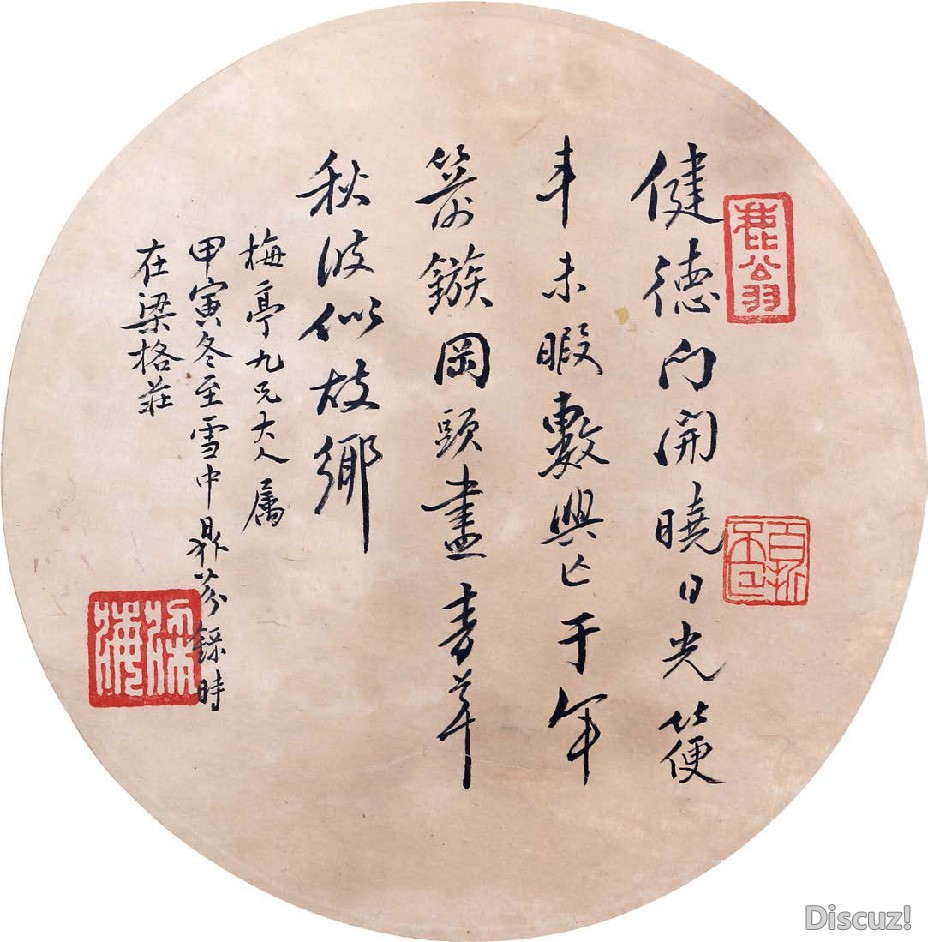 鹿翁
百折不回
健德門開曉日光箯
車未暇數興亡千年
箭鏃岡頭盡青草
秋波似故鄉
梅亭九兄大人属
甲寅冬至雪中鼎芬録時
在梁格莊
Discuz!